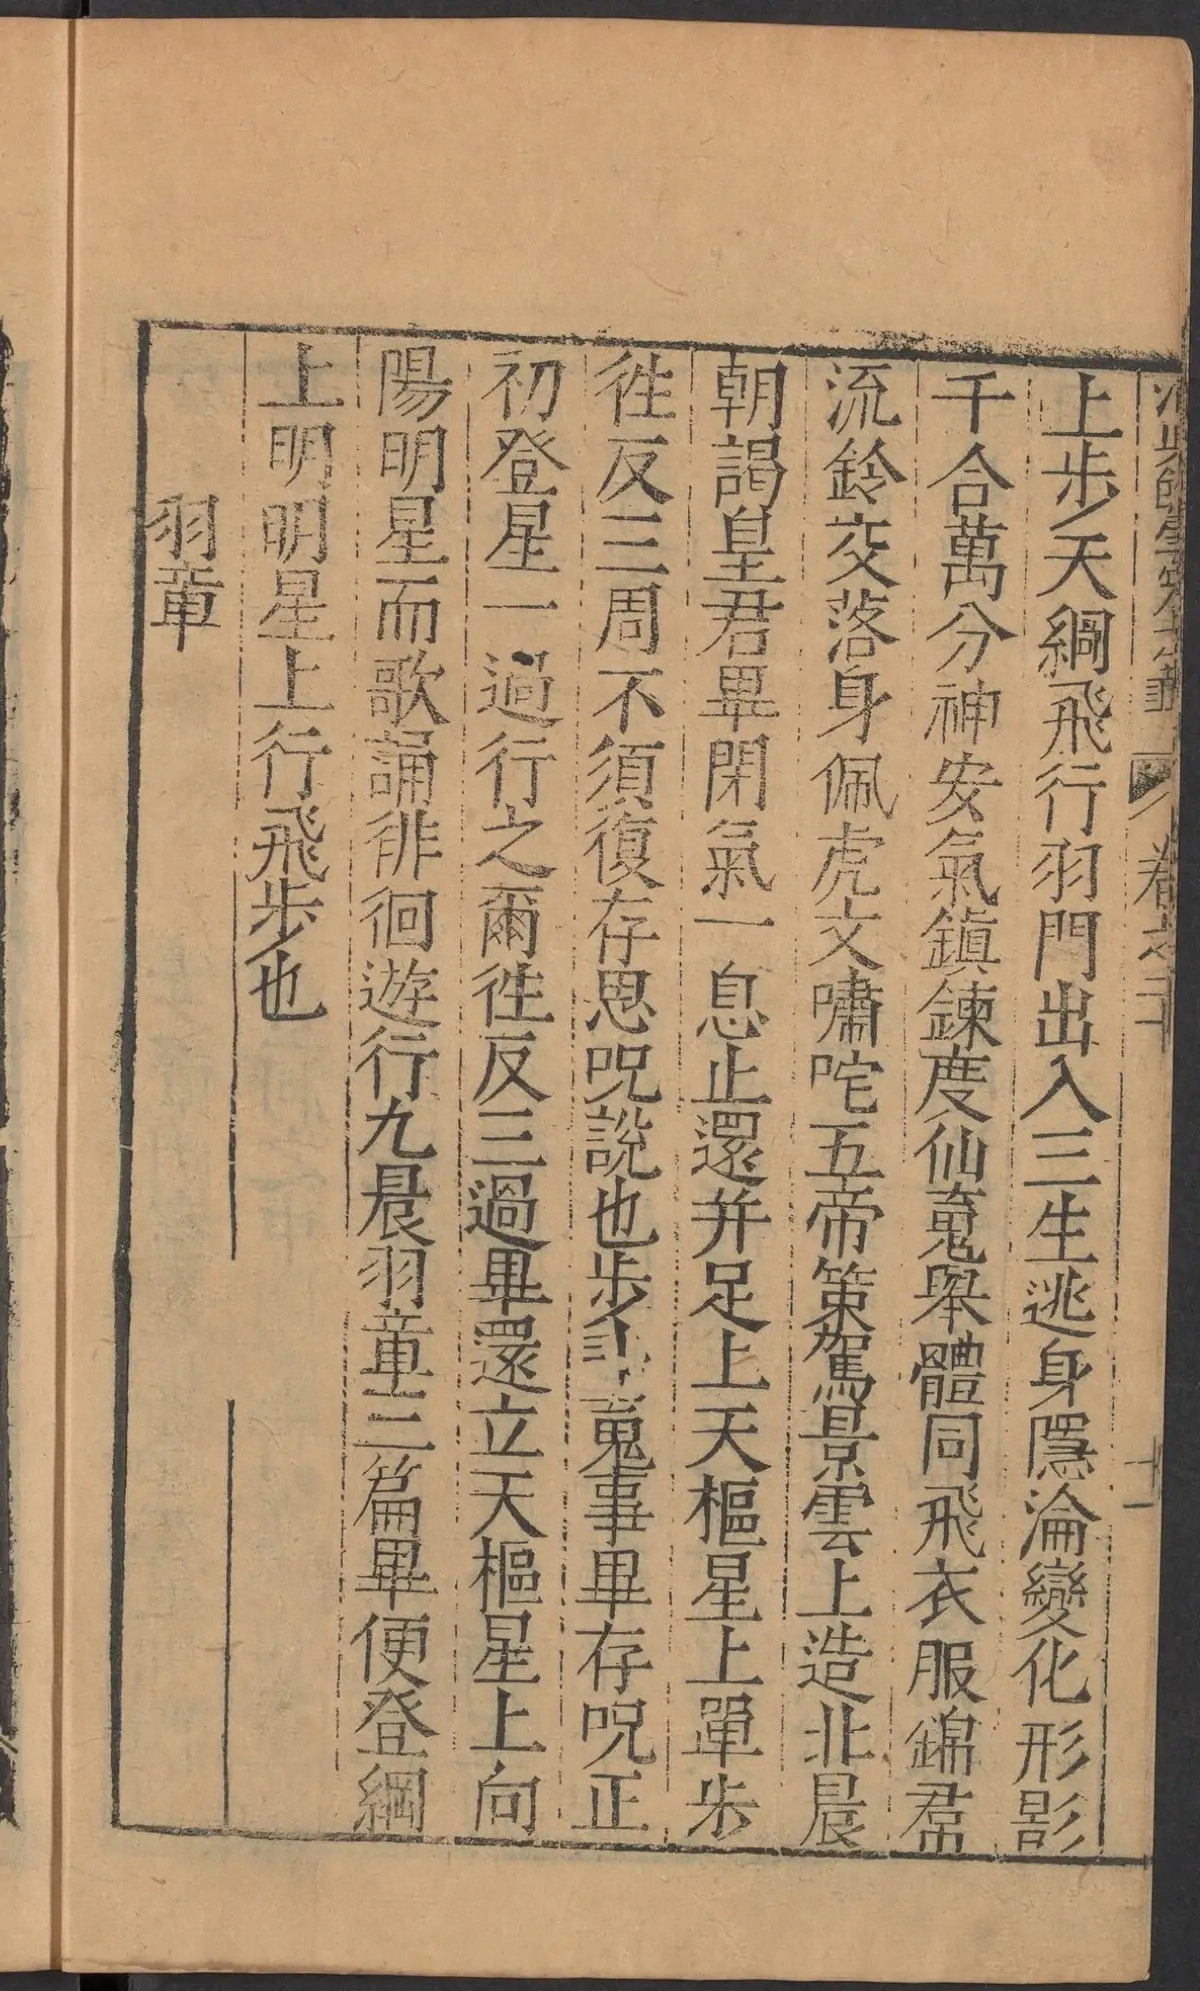 上步天綱飛行羽門出入三生逃身隱淪變化形影
千合萬分神安氣鎮鍊度仙䰟舉體同飛衣服錦帬
流鈴交落身佩虎文嘯咤五帝策駕景雲上造北晨
朝謁皇君畢閉氣一息止還并足上天樞星上單步
徃反三周不須復存思呪說也步䰟事畢存呪正
初登星一過行之爾徃反三過畢還立天樞星上向
陽明星而歌誦徘徊遊行九晨羽章三篇畢便登綱
上明明星上行飛步也
羽章